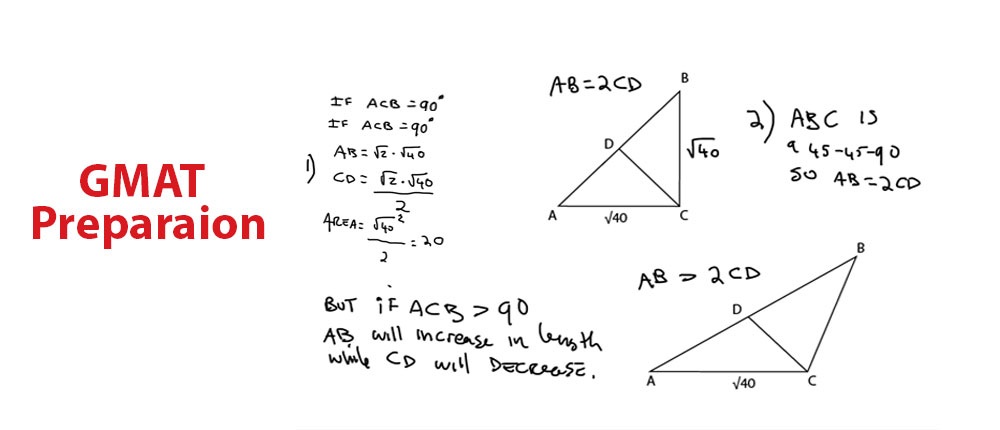 GMAT
Preparaion
IF ACB = 90°
IF ACB = 90°
1) AB = √2 · √40
CD = √2 · √40
2
AREA = √40²
2
= 20
BUT iF ACB > 90
AB will increase in length
while CD will DECREASE.
AB = 2CD
B
D
√40
A
√40
C
2) ABC IS
a 45-45-90
SO AB = 2CD
AB > 2CD
B
D
A
√40
C